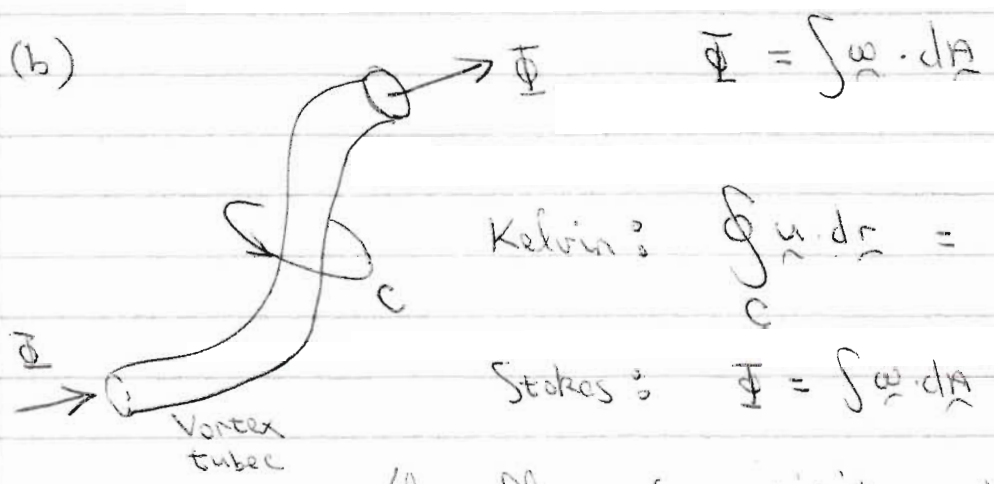 (b)
Φ
Φ = ∫ω·dA
Kelvin: ∮u·dr =
C
C
Φ
Stokes: Φ = ∫ω·dA
Vortex
tubec